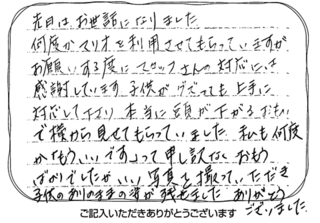 先日はお世話になりました。
何度かマリオを利用させてもらっていますが
お願いする度にスタッフさんの対応には
感謝しています。子供がぐずっても上手に
対応して下さり 本当に頭が下がるおもい
で横から見せてもらっていました。私も何度
か「もういいです」って申し訳ない おもい
ばかりでしたが いい写真を撮っていただき
子供のありのままの姿が残せました ありがとう
ございました。
ご記入いただきありがとうございます